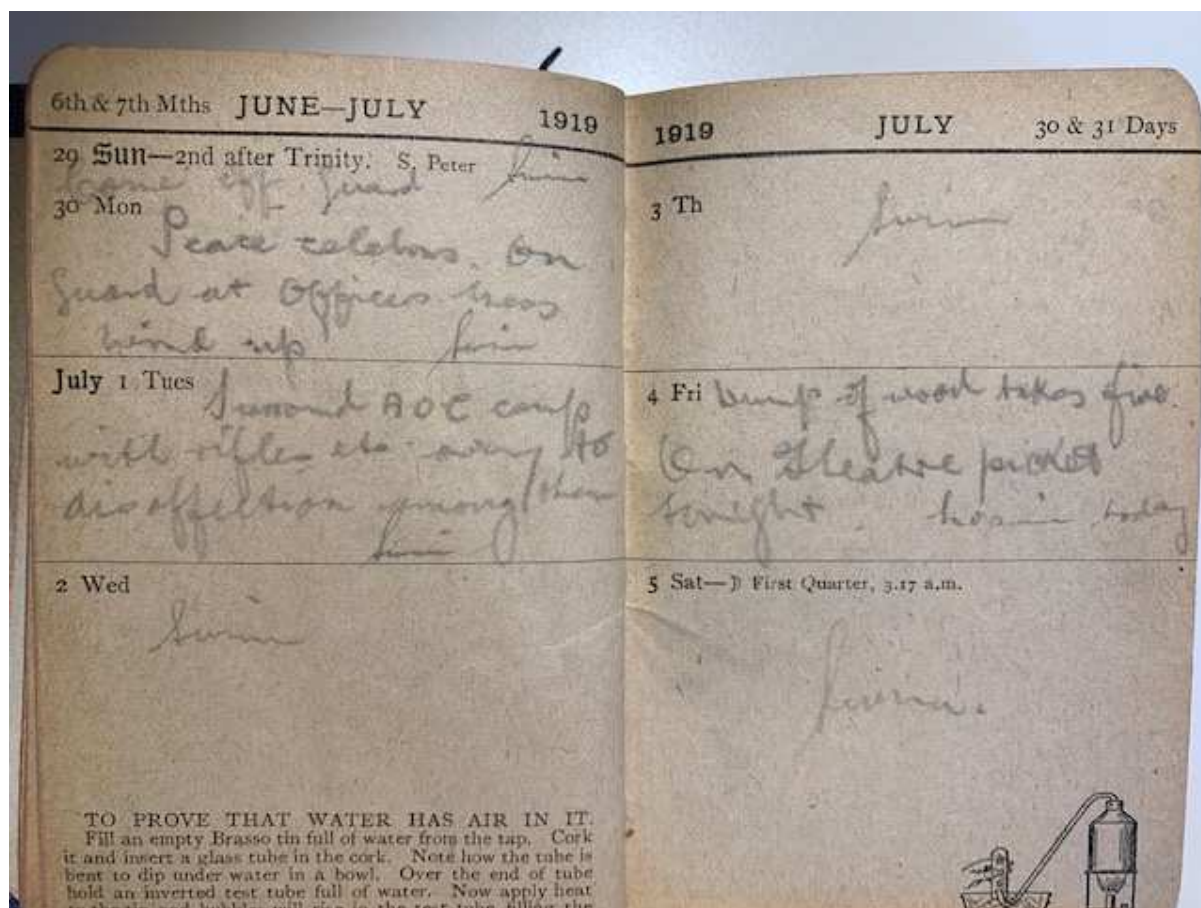 6th & 7th Mths JUNE—JULY 1919
29 Sun—2nd after Trinity. S. Peter Swim
Come off guard
30 Mon
Peace celebns. On
guard at Officers mess
wind up Swim
July 1 Tues
Surround AOC camp
with rifles etc owing to
disaffection among them
Swim
2 Wed
Swim
TO PROVE THAT WATER HAS AIR IN IT.
Fill an empty Brasso tin full of water from the tap. Cork
it and insert a glass tube in the cork. Note how the tube is
bent to dip under water in a bowl. Over the end of tube
hold an inverted test tube full of water. Now apply heat
1919 JULY 30 & 31 Days
3 Th
Swim
4 Fri Dump of wood takes fire.
On Theatre picket
tonight. today
5 Sat—☽ First Quarter, 3.17 a.m.
Swim.